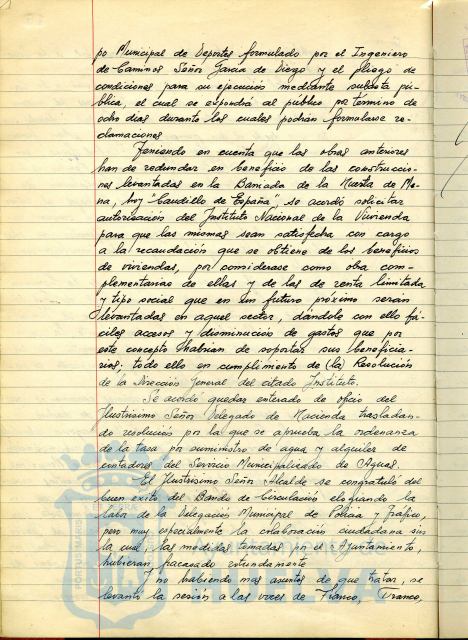 po Municipal de Deportes formulado por el Ingeniero
de Caminos Señor Garcia de Diego y el pliego de
condiciones para su ejecución mediante subasta pú-
blica, el cual se expondrá al público por término de
ocho dias durante los cuales podrán formularse re-
clamaciones
Teniendo en cuenta que las obras anteriores
han de redundar en beneficio de las construccio-
nes levantadas en la Barriada de la Huerta de Me-
na, hoy "Caudillo de España", se acordó solicitar
autorización del Instituto Nacional de la Vivienda
para que las mismas sean satisfecha con cargo
a la recaudación que se obtiene de los beneficios
de viviendas, por considerase como obra com-
plementarias de ellas y de las de renta limitada
y tipo social que en un futuro próximo serán
levantadas en aquel sector, dándole con ello fá-
ciles accesos y disminución de gastos que por
este concepto habrian de soportar sus beneficia-
rios; todo ello en cumplimento de la Resolución
de la Dirección General del citado Instituto.
Se acordó quedar enterado de oficio del
Ilustrisimo Señor Delegado de Hacienda trasladan-
do resolución por la que se aprueba la ordenanza
de la tasa por suministro de agua y alquiler de
contadores del Servicio Municipalizado de Aguas.
El Ilustrisimo Señor Alcalde se congratuló del
buen exito del Bando de Circulación elogiando la
labor de la Delegación Municipal de Policia y Tráfico,
pero muy especialmente la colaboración ciudadana sin
la cual, las medidas tomadas por el Ayuntamiento,
hubieran fracasado rotundamente
Y no habiendo mas asuntos de que tratar, se
levantó la sesión a las voces de Franco, Franco,